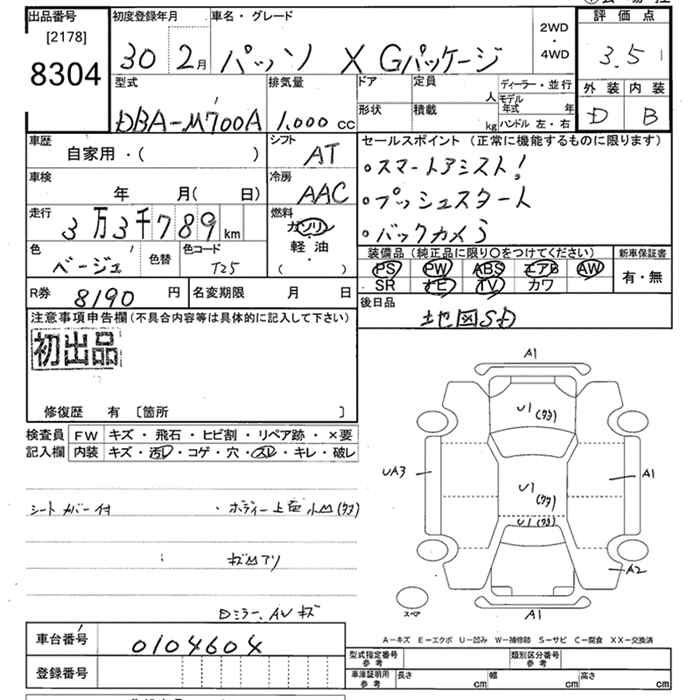 出品番号
[2178]
8304
初度登録年月
30 2月
車名・グレード
パッソ X Gパッケージ
2WD
・
4WD
評価点
3.5
外装 内装
D B
型式
DBA-M700A
排気量
1,000 cc
ドア
定員
人
形状
積載
kg
ディーラー・並行
モデル年式 年
ハンドル 左・右
車歴
自家用・( )
シフト
AT
車検
年 月( 日)
冷房
AAC
走行
3万3千789km
燃料
ガソリン
軽・油
( )
色
ベージュ
色替
色コード
T25
セールスポイント(正常に機能するものに限ります)
・スマートアシスト!
・プッシュスタート
・バックカメラ
装備品(純正品に限り〇をつけてください)
PS PW ABS エアB AW
SR ナビ TV カワ
新車保証書
有・無
R券 8190円
名変期限 月 日
後日品
地図SD
注意事項申告欄(不具合内容等は具体的に記入して下さい)
初出品
修復歴 有 〔箇所 〕
検査員記入欄
FW キズ・飛石・ヒビ割・リペア跡・×要
内装 キズ・汚レ・コゲ・穴・スレ・キレ・破レ
シートカバー付
・ボディー上面小凹(ワク)
キズ凹アリ
Dミラー、AWキズ
A1
U1(ワク)
UA3
U1(ワク)
A1
U1(ワク)
A2
スペア
A1
A−キズ E−エクボ U−凹み W−補修跡 S−サビ C−腐食 XX−交換済
車台番号
0104604
登録番号
型式指定番号 参考
類別区分番号 参考
車庫証明用 参考
長さ cm
幅 cm
高さ cm